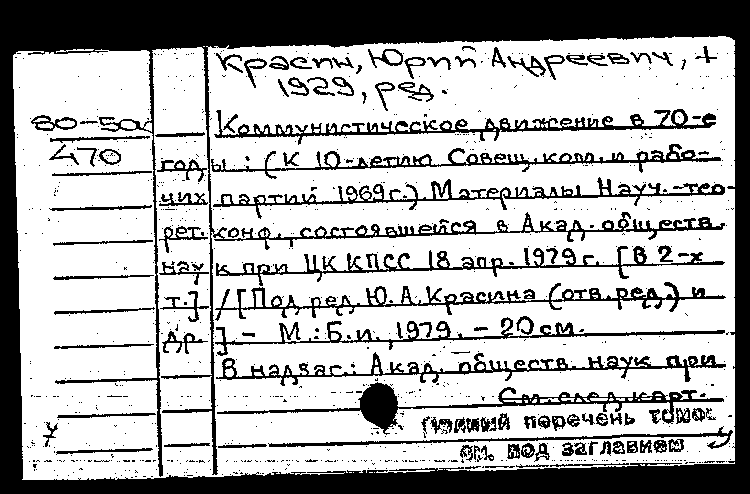 Красин, Юрий Андреевич, +
1929, ред.
80-50
470
Коммунистическое движение в 70-е
годы : (К 10-летию Совещ. ком. и рабо-
чих партий 1969г.). Материалы Науч.-тео-
рет. конф., состоявшейся в Акад. обществ.
наук при ЦК КПСС 18 апр. 1979 г. [В 2-х
т.] / [Под ред. Ю. А. Красина (отв. ред.) и
др.] - М. : Б. и., 1979. - 20 см.
В надзаг. : Акад. обществ. наук при
См. след. карт.
Полный перечень томов
см. под заглавием